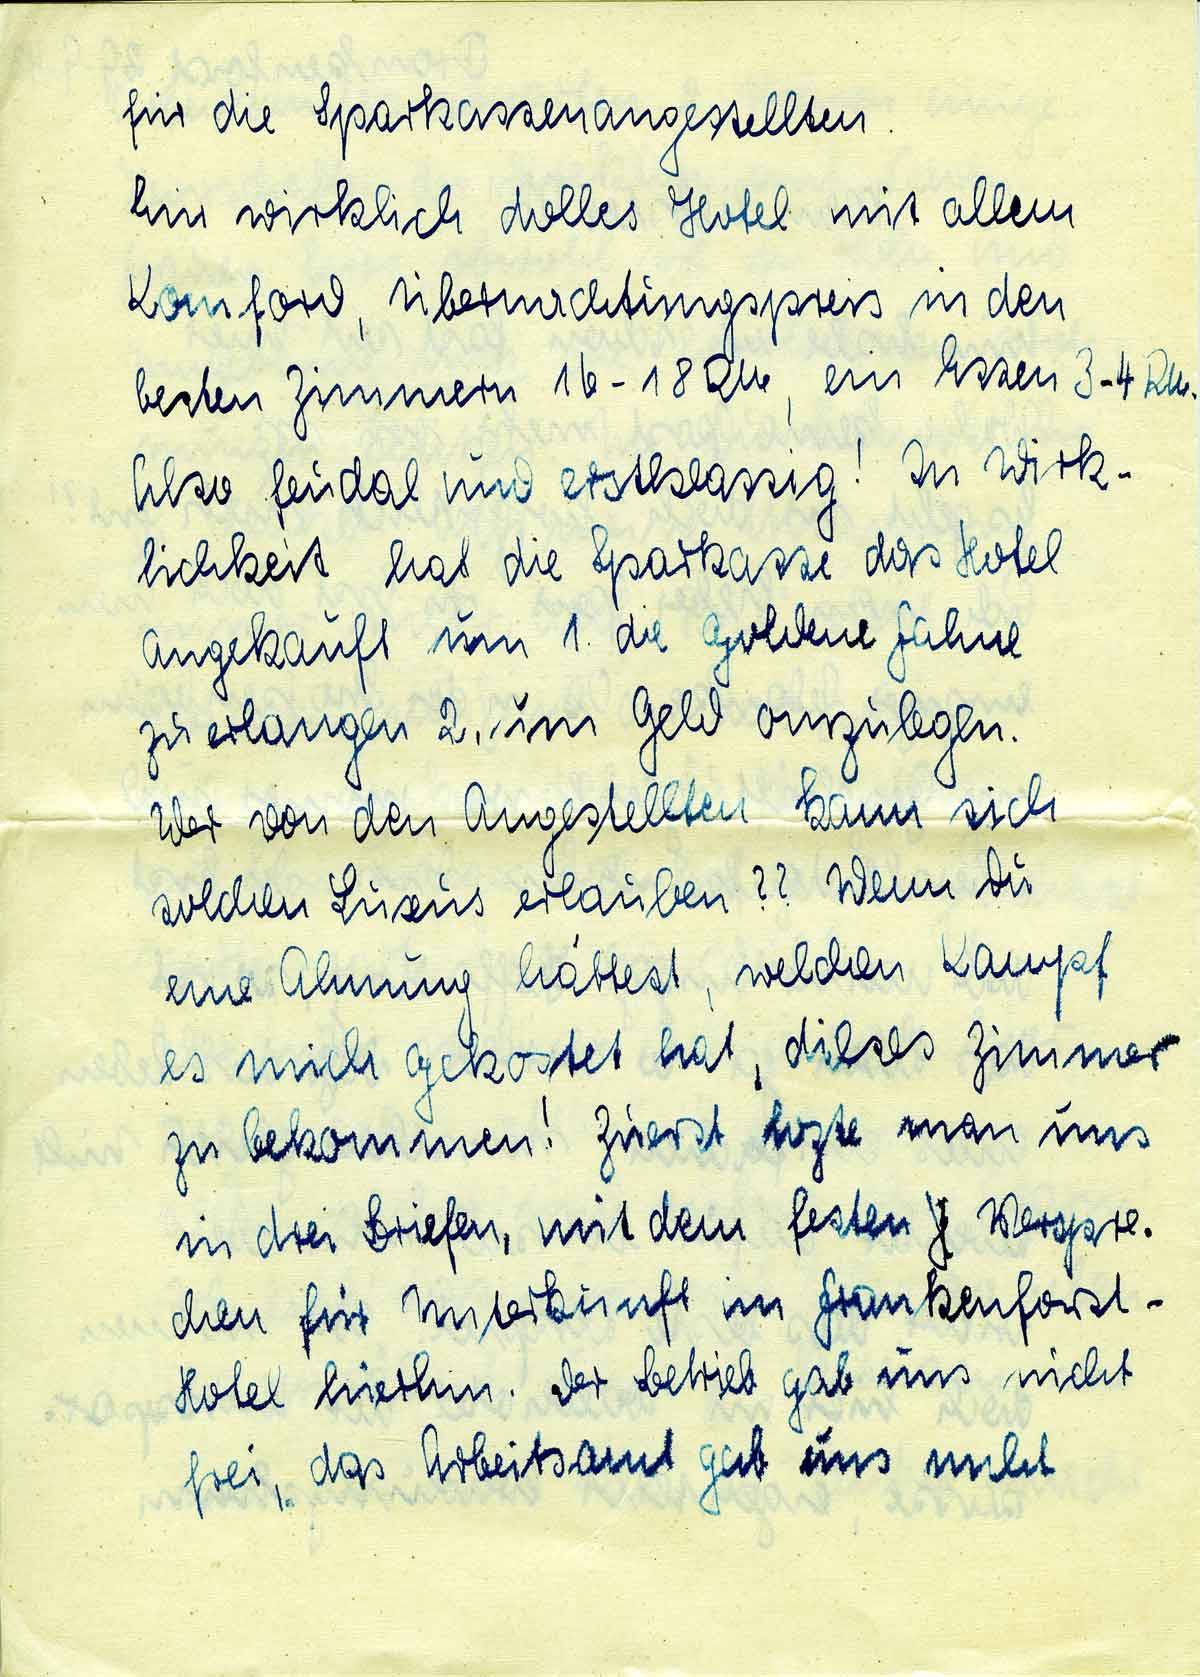 für die Sparkassenangestellten.
Ein wirklich dolles Hotel mit allem
Komford, Übernachtungspreis in den
besten Zimmern 16-18 RM, ein Essen 3-4 RM.
Also feudal und erstklassig! In Wirk-
lichkeit hat die Sparkasse das Hotel
angekauft um 1. die goldene Fahne
zu erlangen 2. um Geld anzulegen.
Wer von den Angestellten kann sich
solchen Luxus erlauben?? Wenn Du
eine Ahnung hättest, welchen Kampf
es mich gekostet hat, dieses Zimmer
zu bekommen! Zuerst man uns
in drei Briefen, mit dem festen Verspre.
chen für Unterkunft im Frankenforst-
Hotel hierhin. Der Betrieb gab uns nicht
frei, das Arbeitsamt gab uns nicht